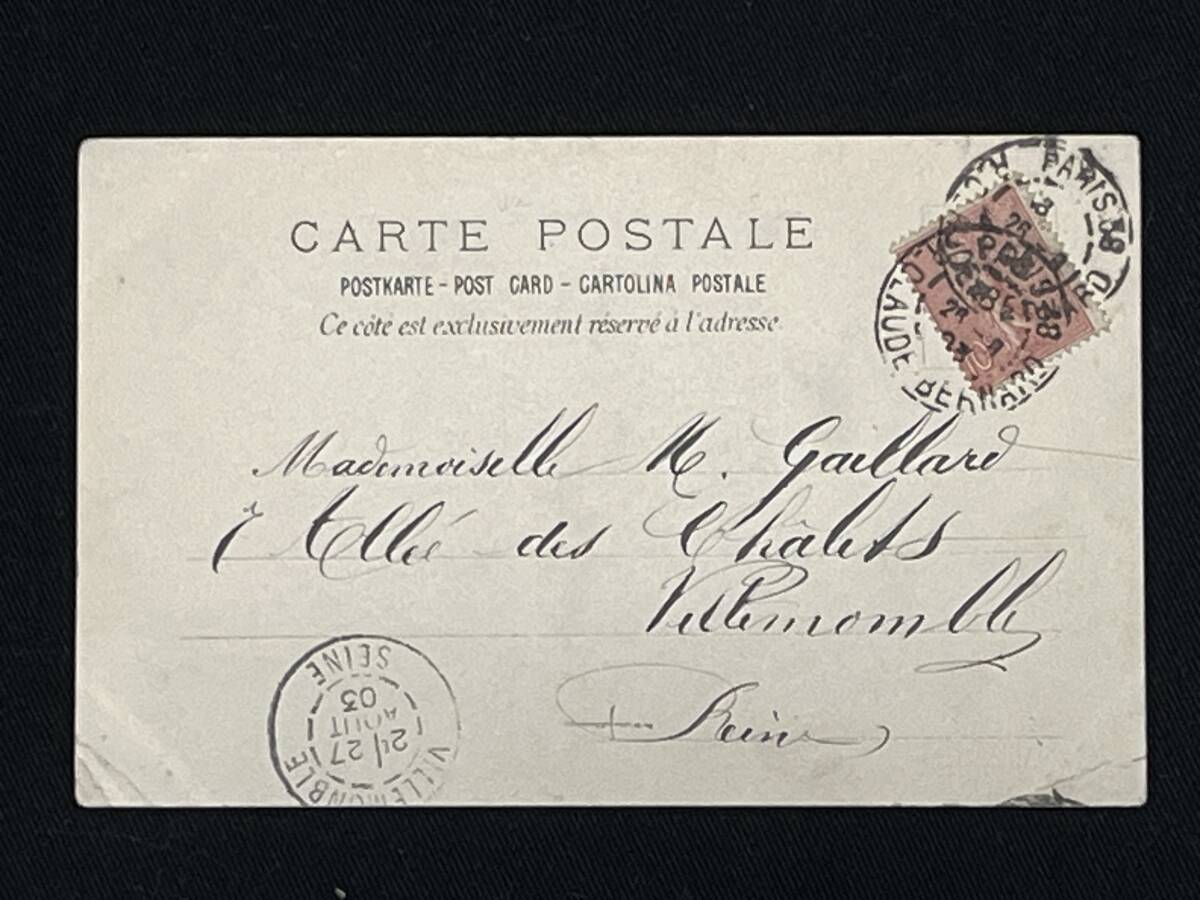 CARTE POSTALE
POSTKARTE - POST CARD - CARTOLINA POSTALE
Ce côté est exclusivement réservé à l'adresse.
PARIS 38
CLAUDE BERNARD
Mademoiselle M. Gaillard
Allée des Châlets
Villemomble
Seine
VILLEMOMBLE
27
AOUT
03
SEINE